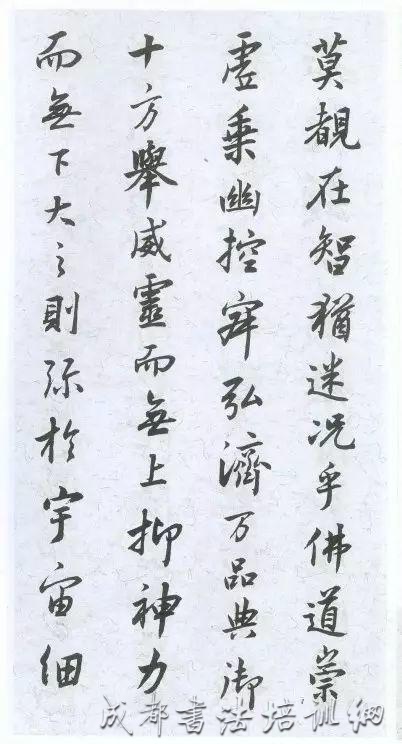 莫覩在智猶迷况乎佛道崇
虛乗幽控寂弘濟万品典御
十方舉威靈而無上抑神力
而無下大之則弥於宇宙細
成都書法培训網